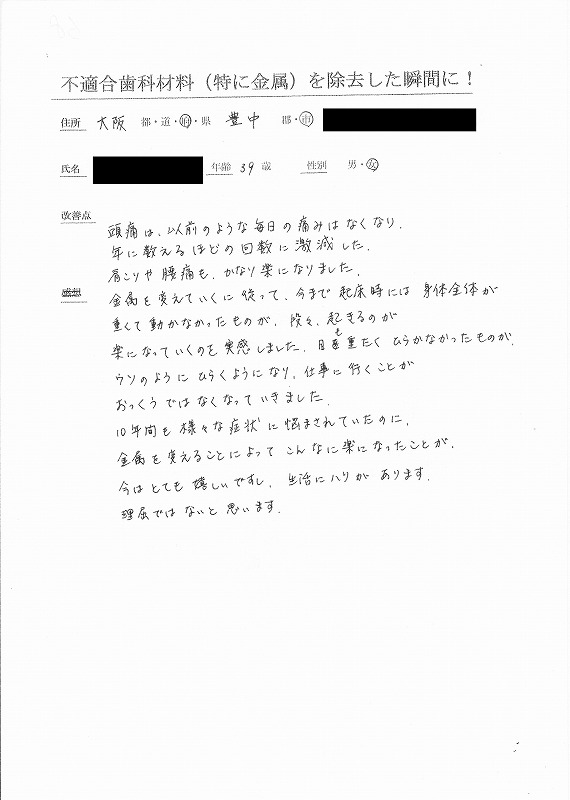 不適合歯科材料（特に金属）を除去した瞬間に！
住所 大阪 都・道・府・県 豊中 郡・市
氏名 年齢 39 歳 性別 男・女
改善点
頭痛は、以前のような毎日の痛みはなくなり、
年に数えるほどの回数に激減した。
肩こりや腰痛も、かなり楽になりました。
感想
金属を変えていくに従って、今まで起床時には身体全体が
重くて動かなかったものが、段々、起きるのが
楽になっていくのを実感しました。目も重たくひらかなかったものが、
ウソのようにひらくようになり、仕事に行くことが
おっくうではなくなっていきました。
10年間も様々な症状に悩まされていたのに、
金属を変えることによってこんなに楽になったことが、
今はとても嬉しいですし、生活にハリがあります。
理屈ではないと思います。